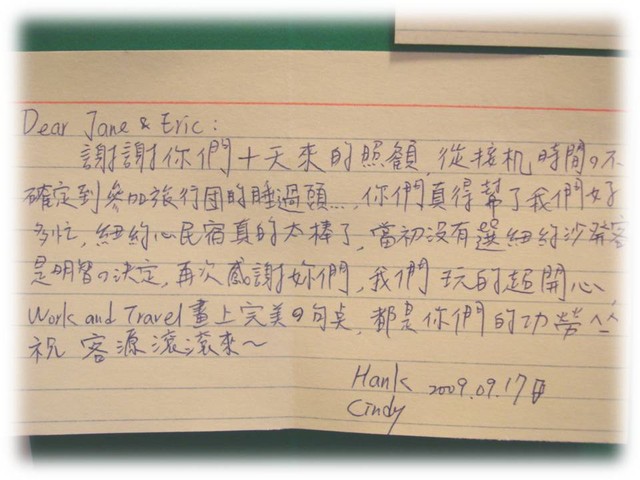 Dear Jane & Eric:
謝謝你們十天來的照顧,從接机時間の不
確定到參加旅行団的睡過頭...,你們真得幫了我們好
多忙,紐約心民宿真的太棒了,當初沒有選紐約沙發客
是明智の決定,再次感謝妳們,我們玩的超開心,
Work and Travel 畫上完美の句点,都是你們的功勞^^
祝 客源滾滾來~
Hank 2009.09.17
Cindy